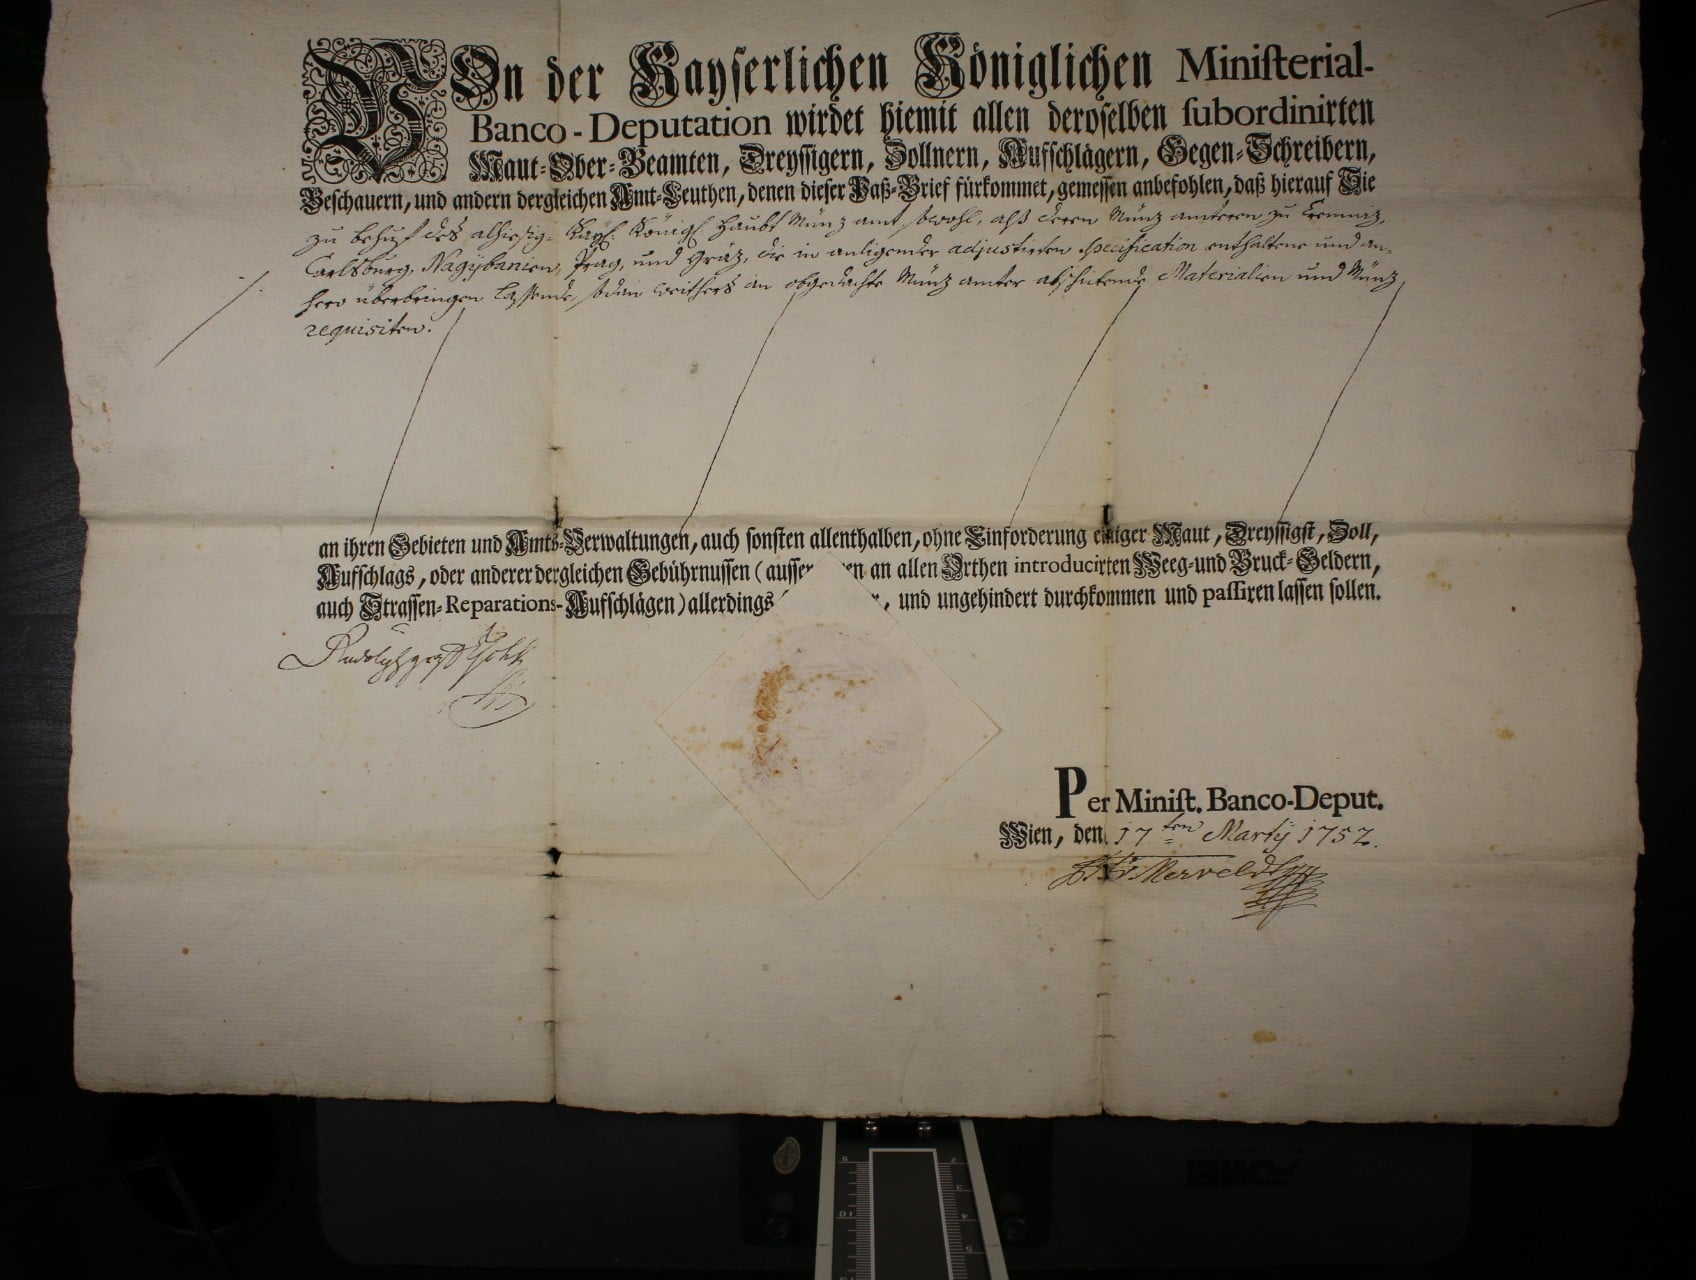 VOn der Kayserlichen Königlichen Ministerial-
Banco-Deputation wirdet hiemit allen deroselben subordinirten
Maut-Ober-Beamten, Dreyssigern, Zollnern, Aufschlägern, Gegen-Schreibern,
Beschauern, und andern dergleichen Amt-Leuthen, denen dieser Paß-Brief fürkommet, gemessen anbefohlen, daß hierauf Sie
zu behuf des alhiesig- Kays. Königl. Haubt Münz amt, sowohl, alß deren Münz amteren zu Cremniz,
Carlsburg, Nagÿbanien, Prag, und Gräz, die in anligender adjustirten specification enthaltene und an-
hero überbringen lassende, sodan weithers an obgedachte Münz amter abschikende Materialien und Münz
requisiten.
an ihren Gebieten und Amts-Verwaltungen, auch sonsten allenthalben, ohne Einforderung einiger Maut, Dreyssigst, Zoll,
Aufschlags, oder anderer dergleichen Gebührnussen (ausser an allen Orthen introducirten Weeg-und Bruck-Geldern,
auch Strassen-Reparations-Aufschlägen) allerdings , und ungehindert durchkommen und passiren lassen sollen.
Rudolph
Per Minist. Banco-Deput.
Wien, den 17ten Martÿ 1752.
Merveldt